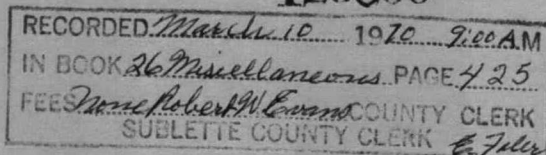 RECORDED March 10 1970 9:00 AM
IN BOOK 26 Miscellaneous PAGE 425
FEES None Robert W Evans COUNTY CLERK
SUBLETTE COUNTY CLERK